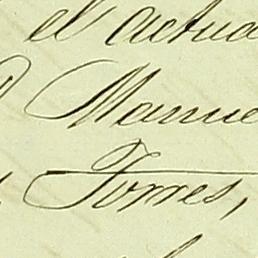 el actua
Manue
Torres,